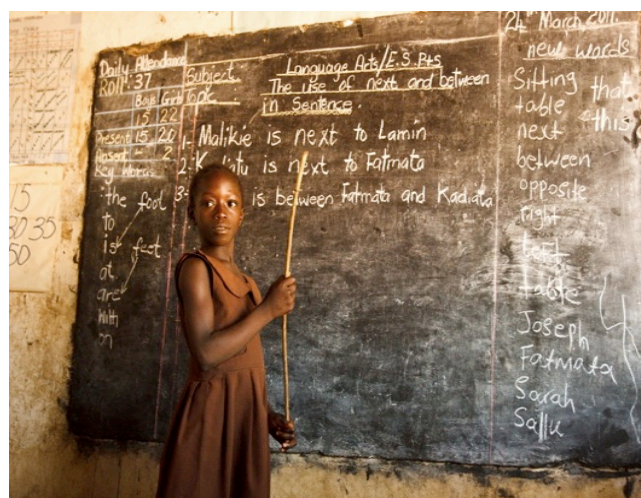 Daily Attendance
Roll: 37
Boys Girls
15 22
Present 15 20
Absent - 2
Key Words
the foot
to
is feet
at
are
With
on
Subject Language Arts/E.S.Pts
Topic The use of next and between
in Sentence.
1- Malikie is next to Lamin
2- is next to Fatmata
3- is between Fatmata and Kadiatu
24th March, 2011.
new words
Sitting that
table this
next
between
opposite
right
left
table
Joseph
Fatmata
Sarah
Sallu
15
30 35
50